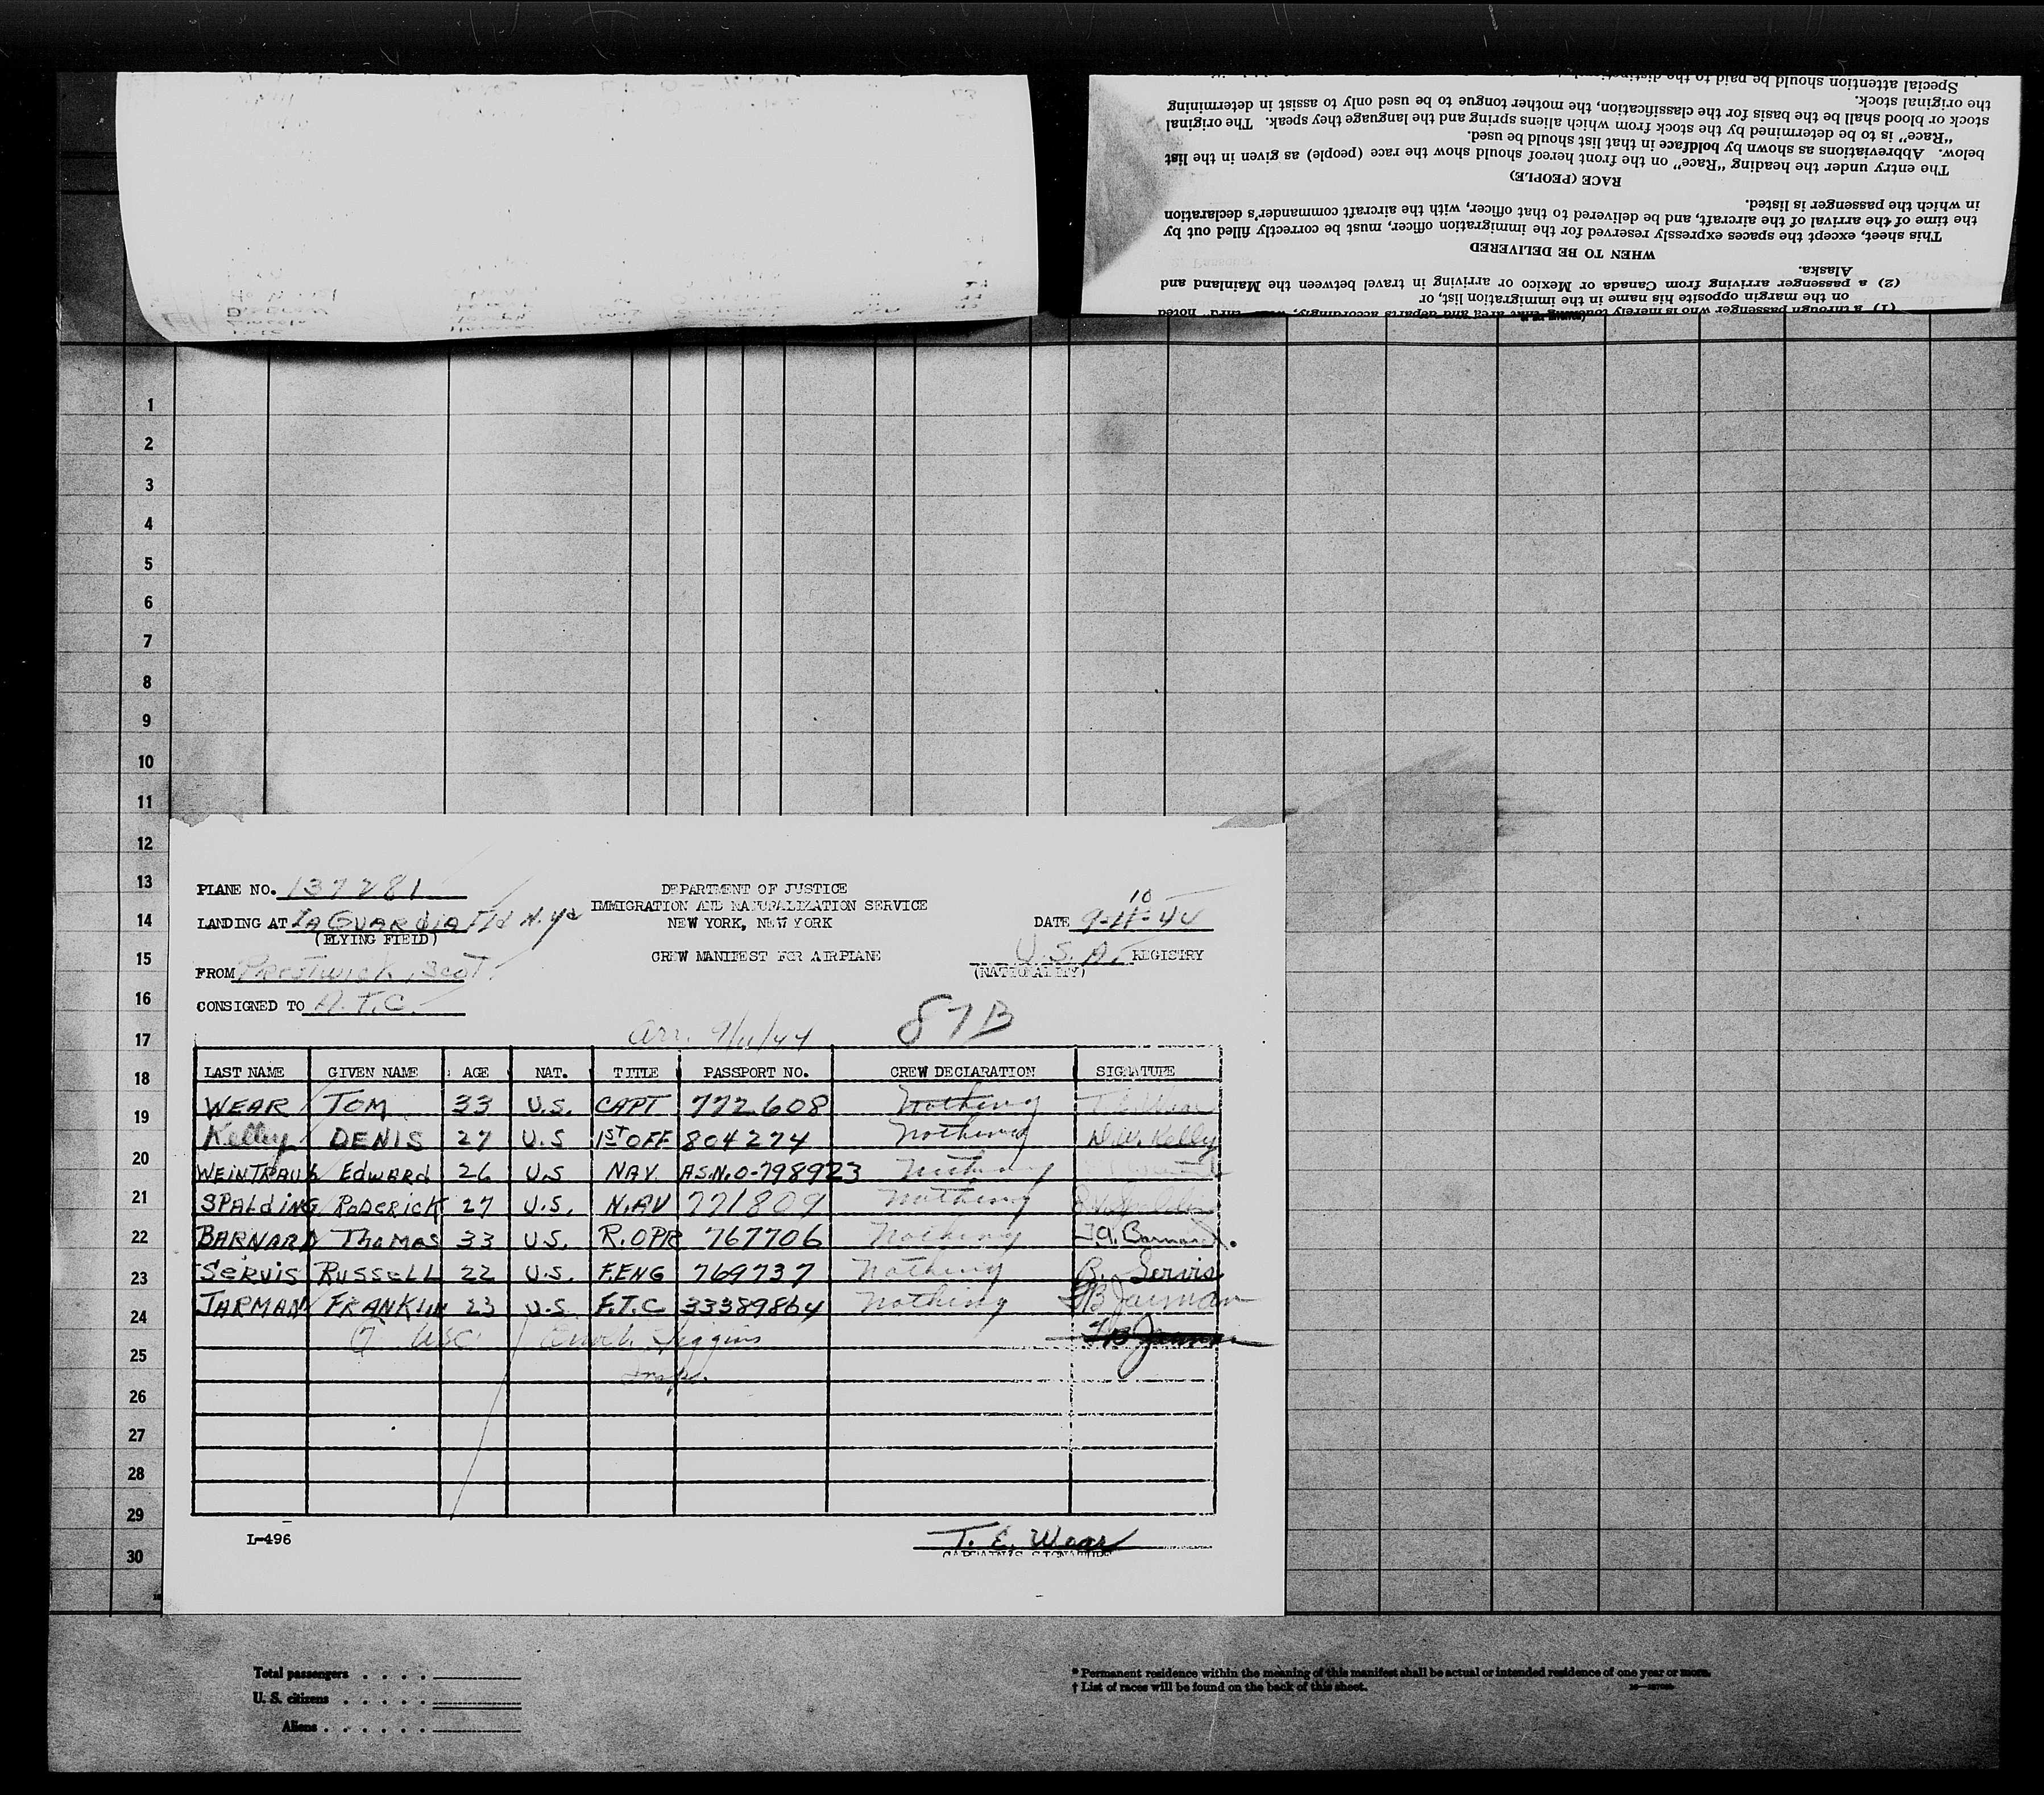 Special attention should be paid to the
the original stock.
stock or blood shall be the basis for the classification, the mother tongue to be used only to assist in determining
"Race" is to be determined by the stock from which aliens spring and the language they speak. The original
below. Abbreviations as shown by boldface in that list should be used.
The entry under the heading "Race" on the front hereof should show the race (people) as given in the list
RACE (PEOPLE)
in which the passenger is listed.
the time of the arrival of the aircraft, and be delivered to that officer, with the aircraft commander's declaration
This sheet, except the spaces expressly reserved for the immigration officer, must be correctly filled out by
WHEN TO BE DELIVERED
Alaska.
(2) a passenger arriving from Canada or Mexico or arriving in travel between the Mainland and
on the margin opposite his name in the immigration list, or
(1) a through passenger who is merely touching that area and departs accordingly, noted
1
2
3
4
5
6
7
8
9
10
11
12
13
14
15
16
17
18
19
20
21
22
23
24
25
26
27
28
29
30
PLANE NO. 137281
DEPARTMENT OF JUSTICE
IMMIGRATION AND NATURALIZATION SERVICE
NEW YORK, NEW YORK
LANDING AT LA GUARDIA Fld N.Y.
(FLYING FIELD)
DATE 9-11-44
10
CREW MANIFEST FOR AIRPLANE
U.S.A. REGISTRY
(NATIONALITY)
FROM Prestwick, Scot.
CONSIGNED TO A.T.C.
arr. 9/11/44
87B
LAST NAME GIVEN NAME AGE NAT. TITLE PASSPORT NO. CREW DECLARATION SIGNATURE
WEAR TOM 33 U.S. CAPT 772608 Nothing T.E. Wear
Kelley DENIS 27 U.S 1ST OFF 804274 Nothing D.W. Kelly
WEINTRAUB EDWARD 26 U.S NAV. A.S.N. O-798923 Nothing
SPALDING RODERICK 27 U.S. NAV 771809 Nothing
BARNARD THOMAS 33 U.S. R.OPR 767706 Nothing T.A. Barnard.
SERVIS RUSSELL 22 U.S. F.ENG 769737 Nothing R. Servis
JARMAN FRANKLIN 23 U.S. F.T.C 33389864 Nothing FB Jarman
7 USC Higgins
Insp.
L-496
T. E. Wear
CAPTAIN'S SIGNATURE
Total passengers . . . .
U. S. citizens . . . . .
Aliens . . . . . .
* Permanent residence within the meaning of this manifest shall be actual or intended residence of one year or more.
† List of races will be found on the back of this sheet.